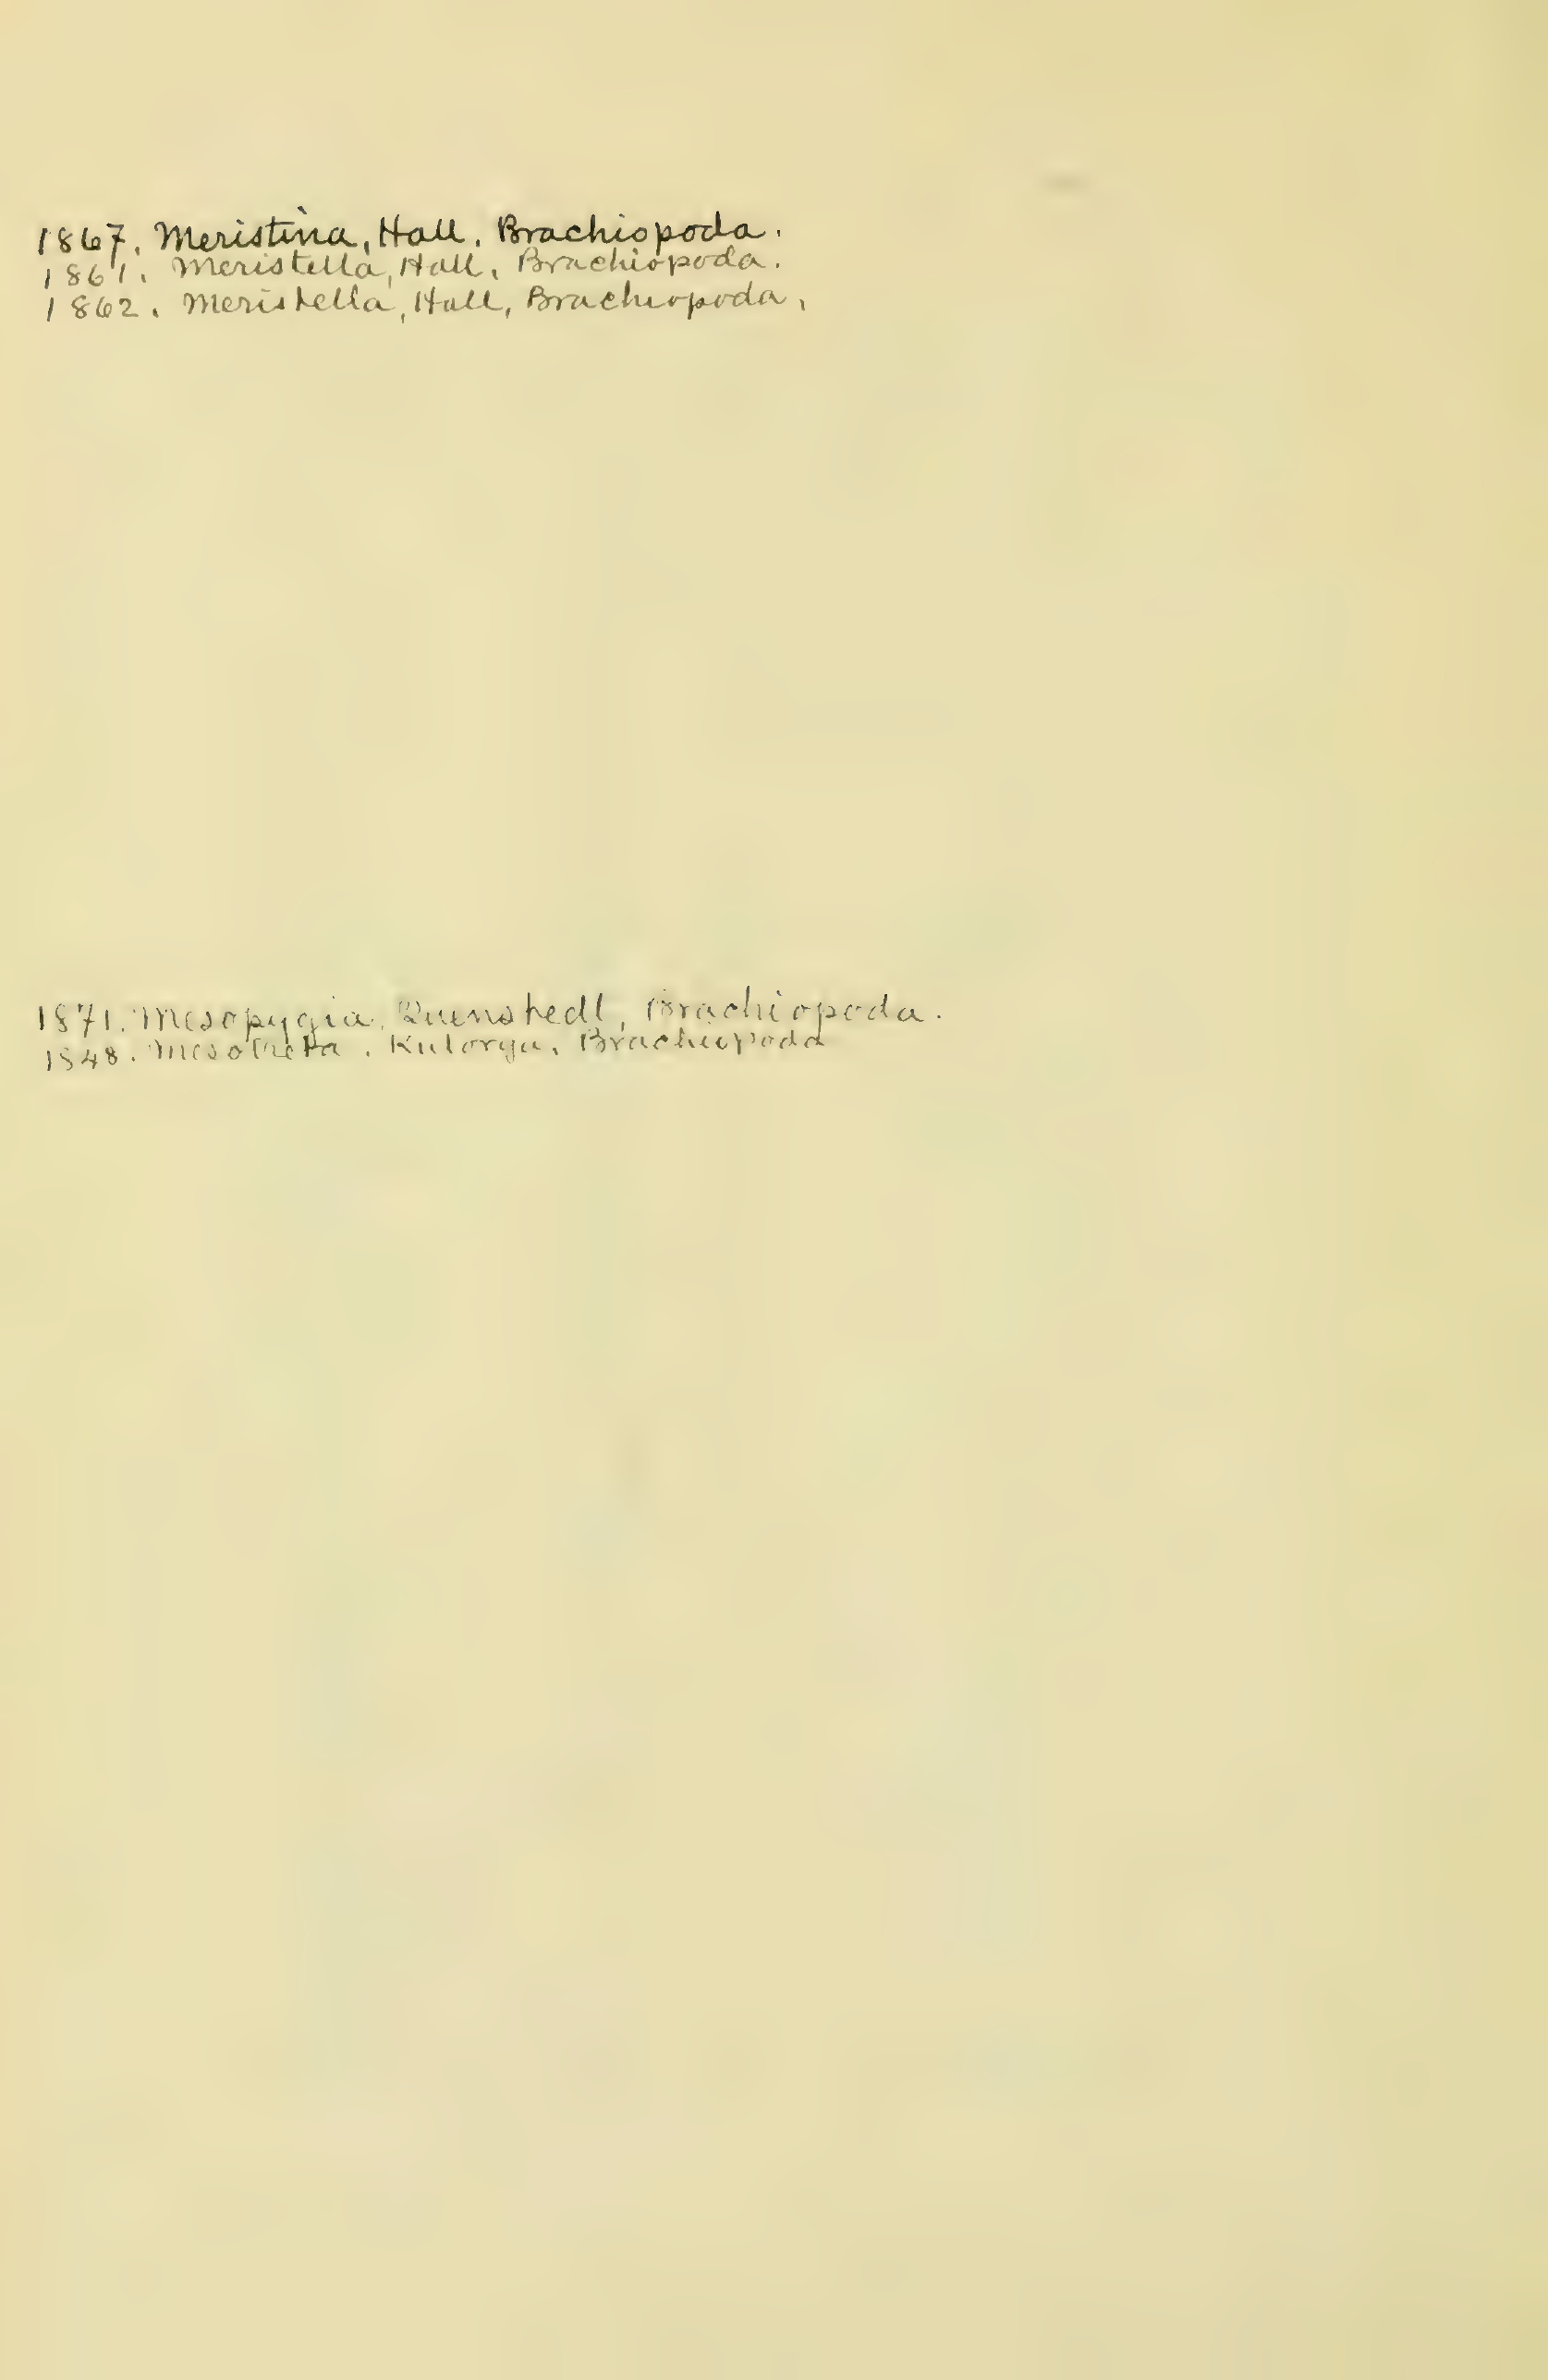 1867. Meristina, Hall. Brachiopoda.
1861. Meristella, Hall, Brachiopoda.
1862. Meristella, Hall, Brachiopoda,
1871. Mesopygia. Quenstedt, Brachiopoda.
1848. Mesotreta. Kutorga. Brachiopoda